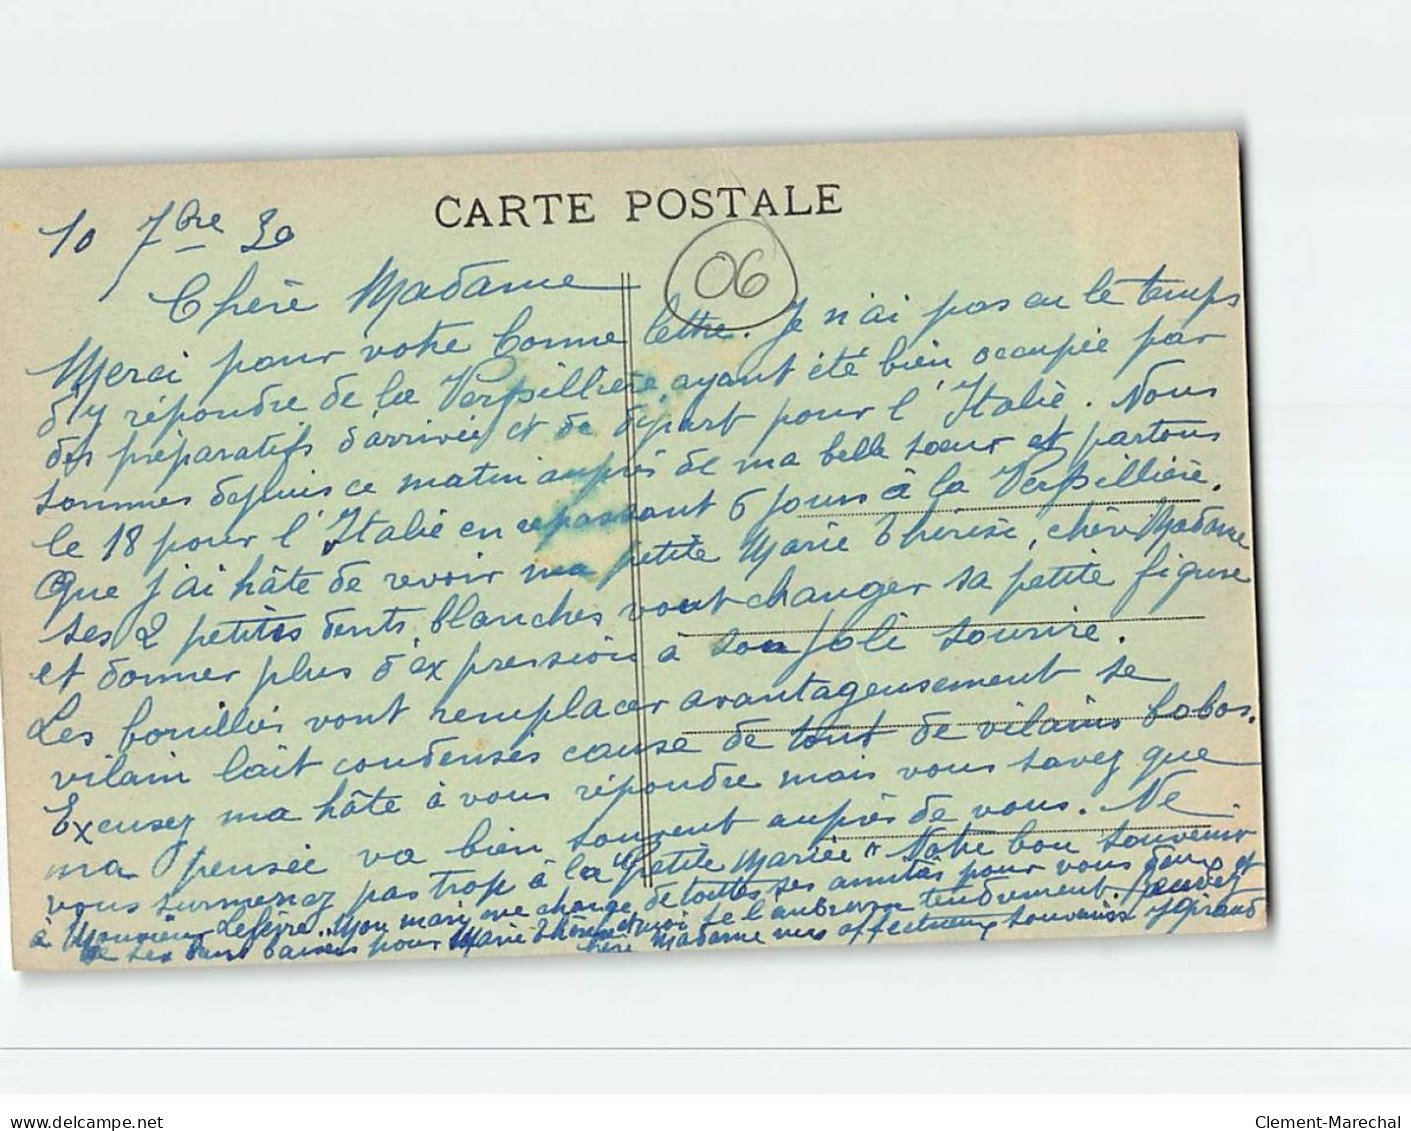 CARTE POSTALE
10 7bre 30
06
Chère Madame
Merci pour votre bonne lettre. Je n'ai pas eu le temps
d'y répondre de la Verpillière, ayant été bien occupée par
des préparatifs d'arrivée et de départ pour l'Italie. Nous
sommes depuis ce matin auprès de ma belle soeur et partons
le 18 pour l'Italie en repassant 6 jours à la Verpillière.
Que j'ai hâte de revoir ma petite Marie Thérèse, chère Madame
ses 2 petites dents blanches vont changer sa petite figure
et donner plus d'expression à son joli sourire.
Les bouillies vont remplacer avantageusement se
vilain lait condensés cause de tout de vilains bobos.
Excusez ma hâte à vous répondre mais vous savez que
ma pensée va bien souvent auprès de vous. Ne
vous surmenez pas trop à la "Petite Mariée" Notre bon souvenir
à Monsieur Lefèvre. Mon mari me charge de toutes ses amitiés pour vous deux et
de ses bons baisers pour Marie Thérèse et moi je l'embrasse tendrement. Recevez
chère Madame mes affectueux souvenirs Giraud
Clement-Marechal